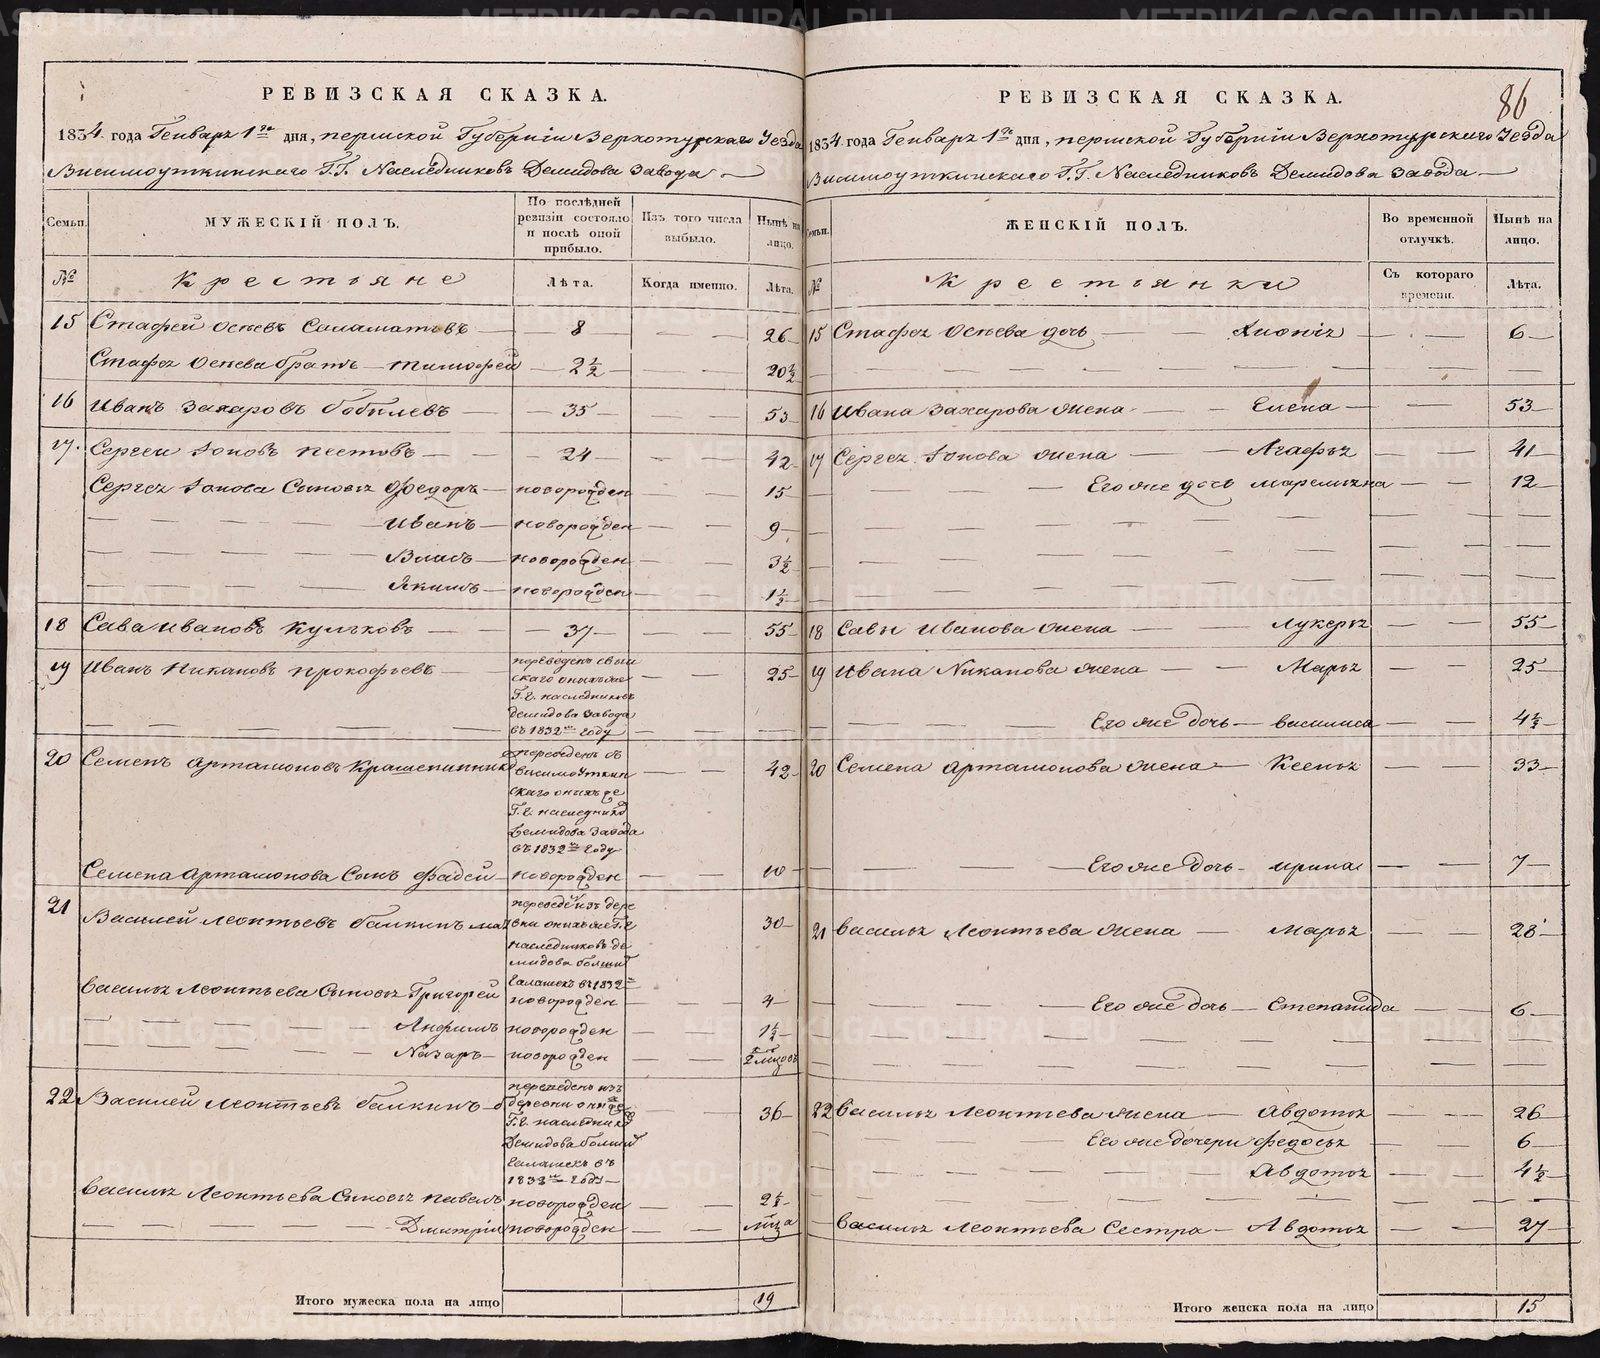 РЕВИЗСКАЯ СКАЗКА.
1834. года Генваря 1го дня, пермской Губерніи Верхотурскаго Уезда
Висимоуткинскаго Г.Г. Наследниковъ Демидова Завода
Семьи.
МУЖЕСКІЙ ПОЛЪ.
По послѣдней ревизіи состояло и послѣ оной прибыло.
Изъ того числа выбыло.
Нынѣ на лицо.
№
Крестьяне
Лѣта.
Когда именно.
Лѣта.
15 Стафей Осиевъ Саламатовъ 8 26
Стафея Осиева братъ Тимофей 2½ 20½
16 Иванъ Захаровъ Бобылевъ 35 53
17. Сергей Іоновъ Пестовъ 24 42
Сергея Іонова Сыновья Федоръ новорожден 15
Иванъ новорожден 9
Власъ новорожден 3½
Якимъ новорожден 1½
18 Сава Ивановъ Кульковъ 37 55
19 Иванъ Никановъ Прокофьевъ 25
скаго оныхъ же
Г.Г. наследниковъ
демидова Завода
въ 1832м Году
20 Семенъ Артамоновъ Крашенинник 42
переведенъ
висимоуткин
скаго оныхъ же
Г.Г. наследников
Демидова Завода
въ 1832м Году
Семена Артамонова Сынъ Фадей новорожден 10
21 Василей Леонтьевъ Балкинъ 30
переведе изъ дере
вни оныхъ же Г.Г.
наследниковъ де
мидова болших
Галашекъ въ 1832м
Василья Леонтьева Сыновья Григорей новорожден 4
Анфимъ новорожден 1½
Назаръ новорожден 2 мцовъ
22 Василей Леонтьевъ Балкинъ 36
переведенъ изъ
деревни оныхъ же
Г.Г. наследников
Демидова болших
Галашекъ въ
1832м Году
Василья Леонтьева Сыновья Павелъ новорожден 2½
Дмитрій новорожден
Итого мужеска пола на лицо 19
86
РЕВИЗСКАЯ СКАЗКА.
1834. года Генваря 1го дня, пермской Губерніи Верхотурскаго Уезда
Висимоуткинскаго Г.Г. Наследниковъ Демидова Завода
Семьи.
ЖЕНСКІЙ ПОЛЪ.
Во временной отлучкѣ.
Нынѣ на лицо.
№
Крестьянки
Съ котораго времени.
Лѣта.
15 Стафея Осиева дочь 6
16 Ивана Захарова жена Елена 53
17 Сергея Іонова жена Агафья 41
Его же дочь Маремьяна 12
18 Савы Иванова жена Лукерья 55
19 Ивана Никанова жена Марья 25
Его же дочь Василиса 4½
20 Семена Артамонова жена Ксенья 33
Его же дочь Ирина 7
21 Василья Леонтьева жена Марья 28
Его же дочь Степанида 6
22 Василья Леонтьева жена Авдотья 26
Его же дочери Федосья 6
Авдотья 4½
Василья Леонтьева Сестра Авдотья 27
Итого женска пола на лицо 15
METRIKI.GASO-URAL.RU